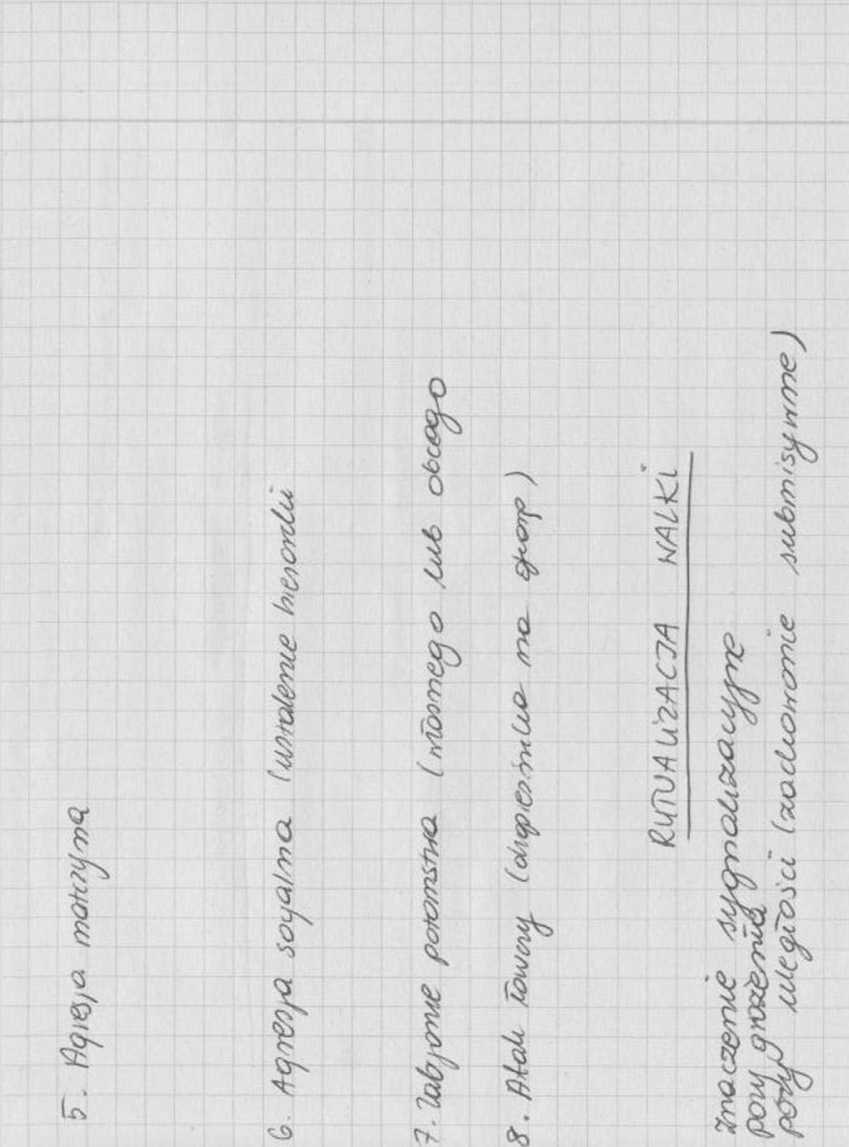 5. Agresja matczyna
6. Agresja socjalna (ustalenie hierarchii
7. Zabijanie potomstwa (własnego lub obcego
8. Atak łowczy (drapieżnika na
RUTUALIZACJA WALKI
Znaczenie sygnalizacyjne
pozy grożenia
pozy uległości (zachowanie submisywne)